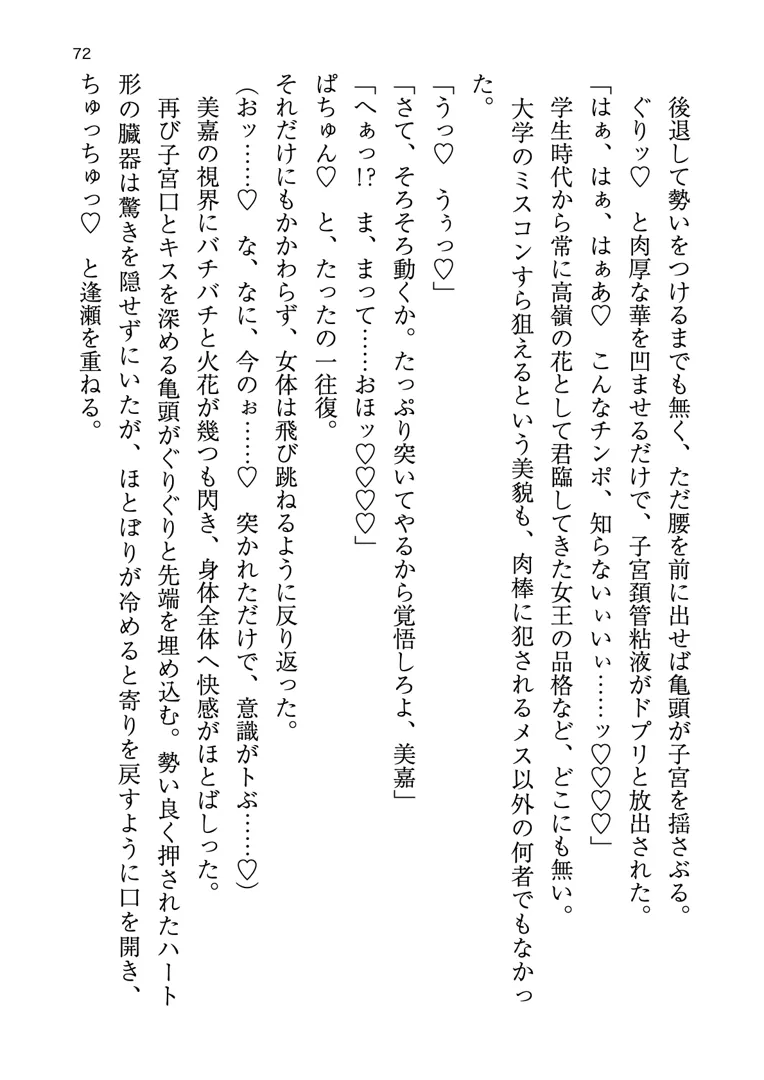 72
後退して勢いをつけるまでも無く、ただ腰を前に出せば亀頭が子宮を揺さぶる。
ぐりッ♡　と肉厚な華を凹ませるだけで、子宮頚管粘液がドプリと放出された。
「はぁ、はぁ、はぁあ♡　こんなチンポ、知らないぃいぃ……ッ♡♡♡♡」
学生時代から常に高嶺の花として君臨してきた女王の品格など、どこにも無い。
大学のミスコンすら狙えるという美貌も、肉棒に犯されるメス以外の何者でもなかっ
た。
「うっ♡　うぅっ♡」
「さて、そろそろ動くか。たっぷり突いてやるから覚悟しろよ、美嘉」
「へぁっ!?　ま、まって……おほッ♡♡♡♡」
ぱちゅん♡　と、たったの一往復。
それだけにもかかわらず、女体は飛び跳ねるように反り返った。
（おッ……♡　な、なに、今のぉ……♡　突かれただけで、意識がトぶ……♡）
美嘉の視界にバチバチと火花が幾つも閃き、身体全体へ快感がほとばしった。
再び子宮口とキスを深める亀頭がぐりぐりと先端を埋め込む。勢い良く押されたハート
形の臓器は驚きを隠せずにいたが、ほとぼりが冷めると寄りを戻すように口を開き、
ちゅっちゅっ♡　と逢瀬を重ねる。